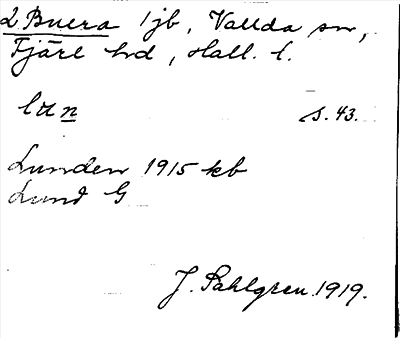 2 Buera 1 jb, Vallda sn,
Fjäre hd, Hall. l.
lun s. 43.
Lunden 1915 kb
Lund G
J. Sahlgren 1919.